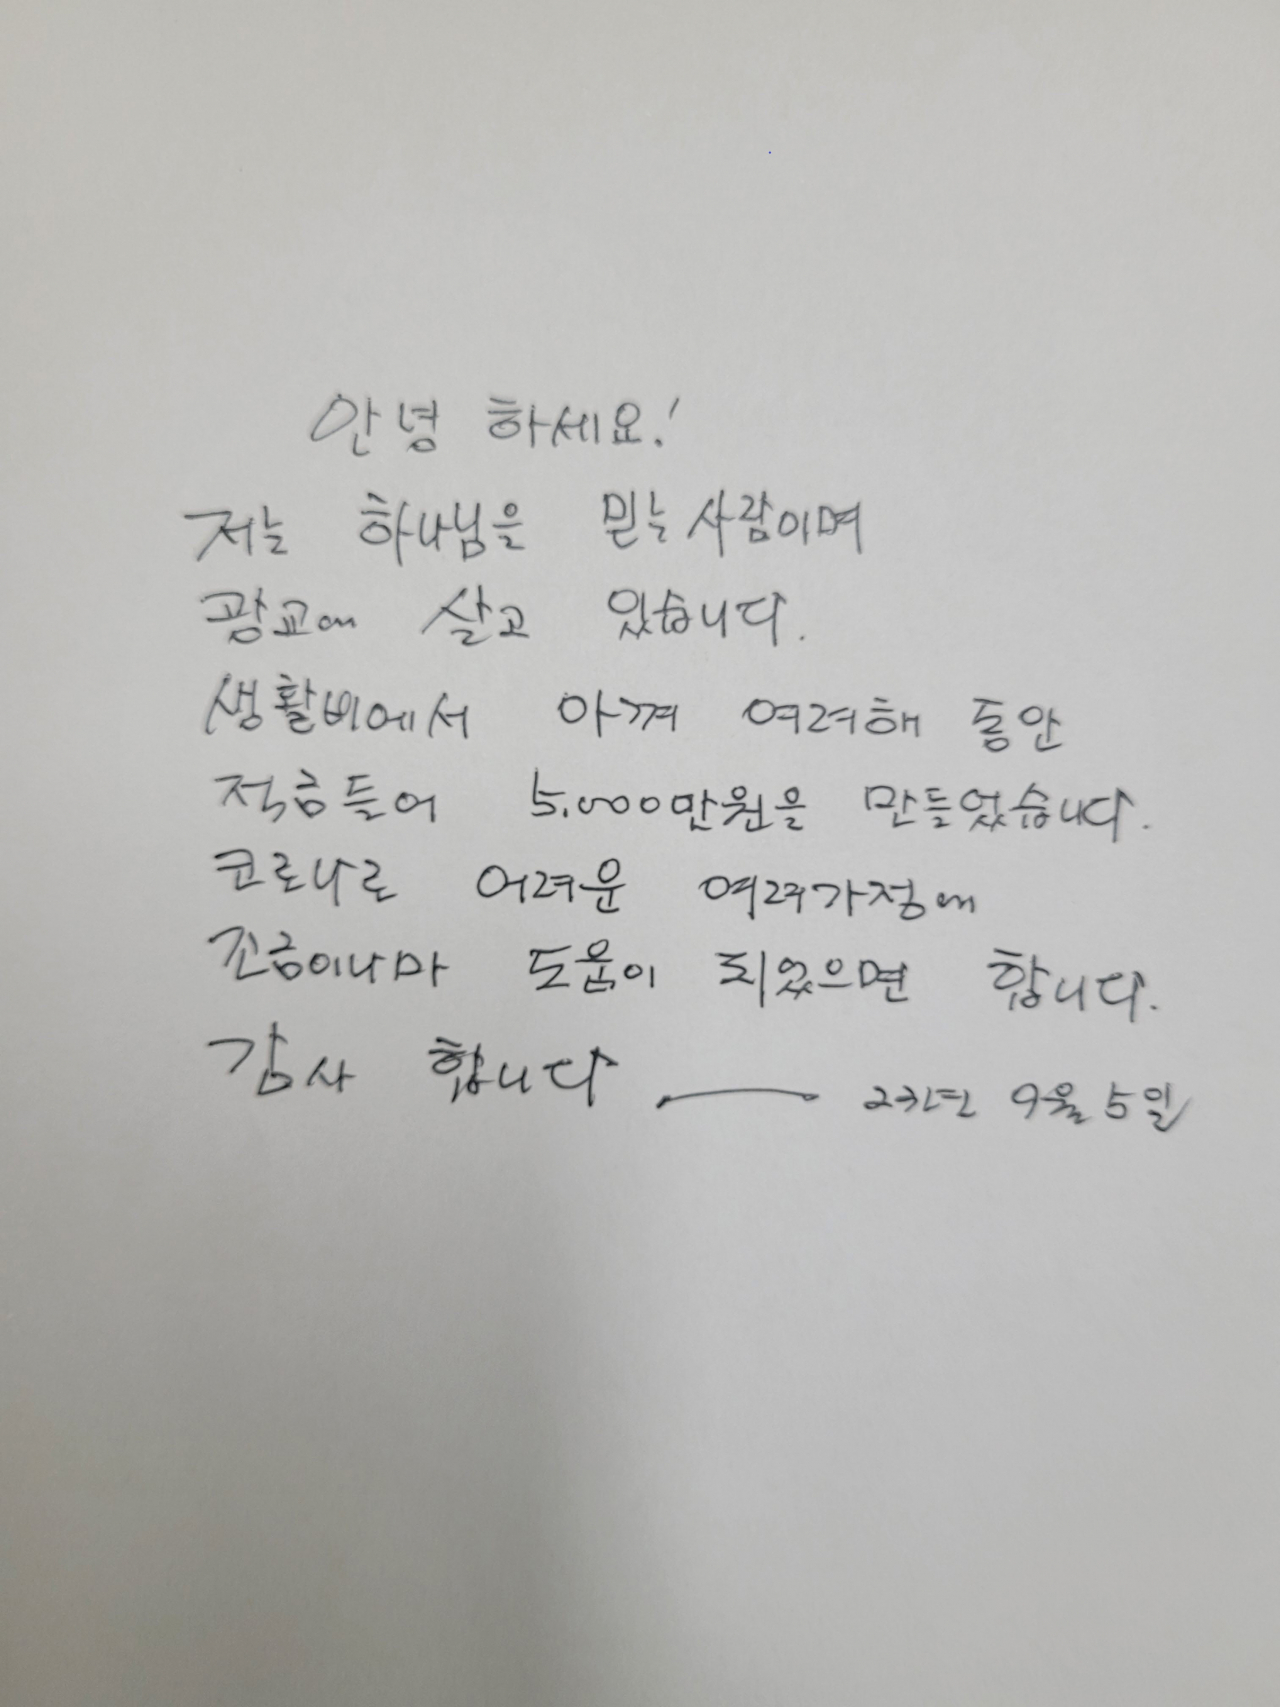 안녕 하세요!
저는 하나님을 믿는 사람이며
광교에 살고 있습니다.
생활비에서 아껴 여려해 동안
적금들어 5.000만원을 만들었습니다.
코로나로 어려운 여려가정에
조금이나마 도움이 되었으면 합니다.
감사 합니다 — 23년 9월 5일